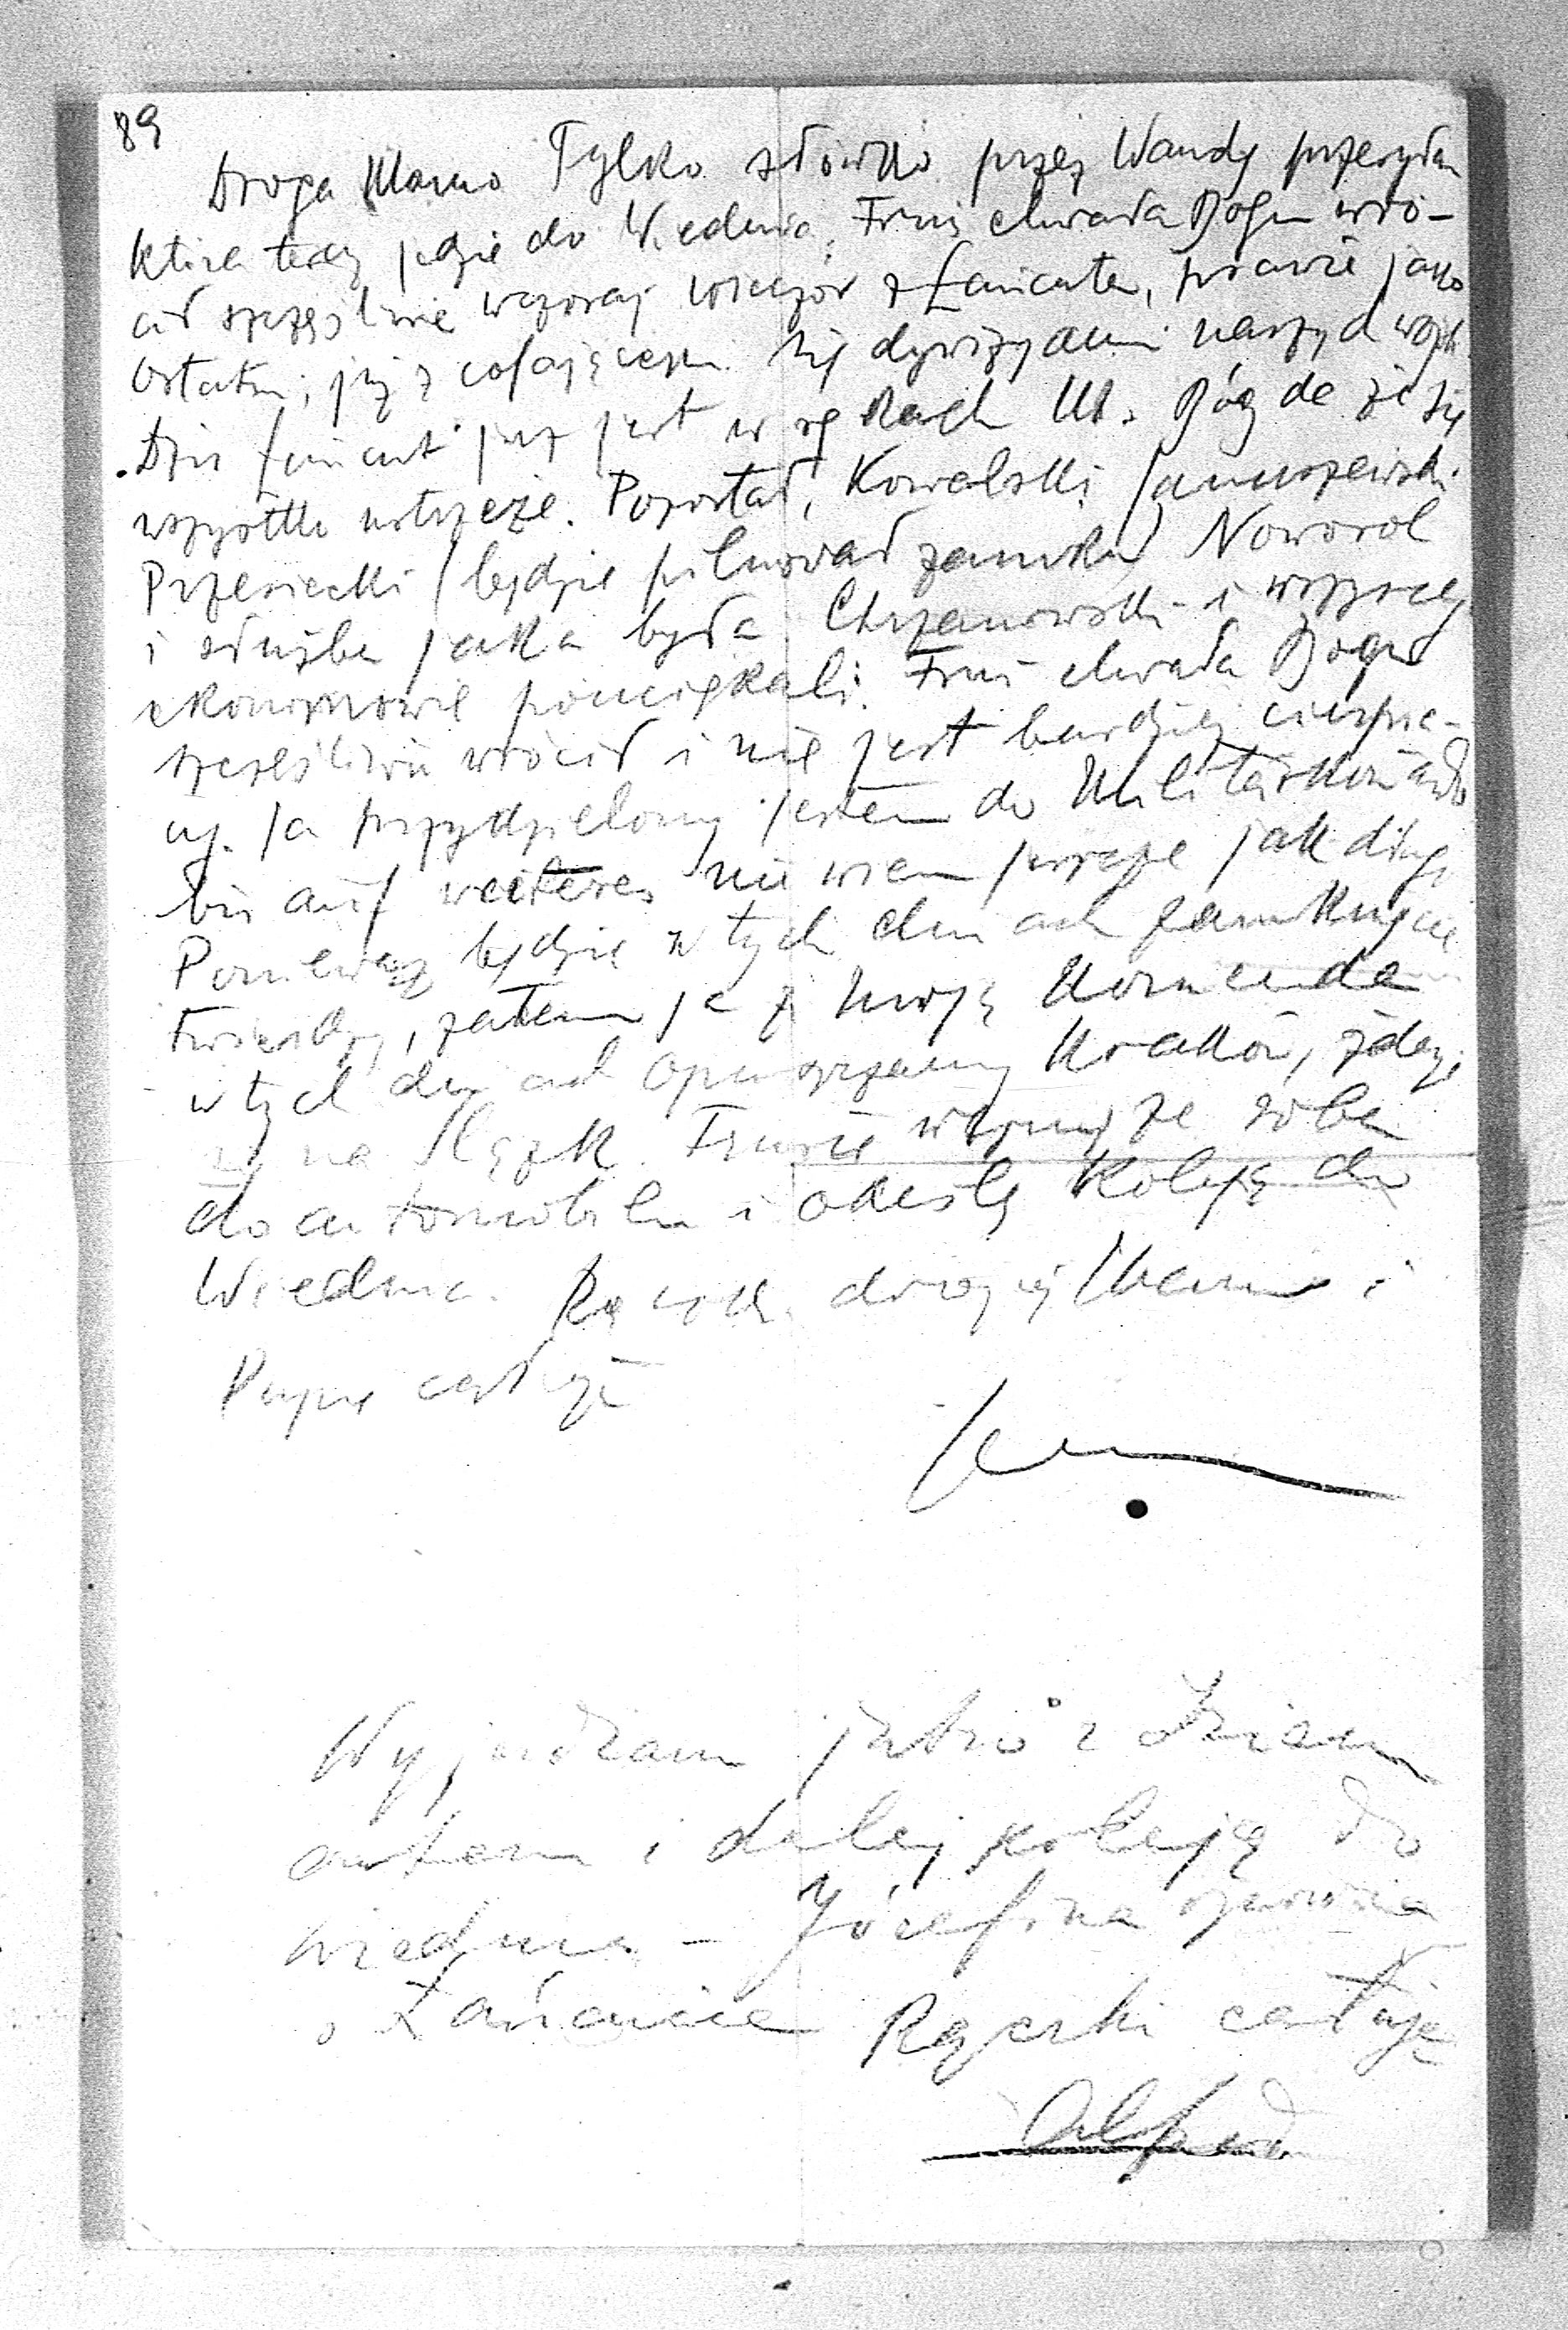 89
Droga Mamo Tylko słówko przez Wandę przesyłam
która teraz jedzie do Wiednia, Fruś chwała Bogu wró-
cił szczęśliwie wczoraj wieczór z Łańcuta, prawie jako
ostatni, już z cofającemi się dywizyami naszych wojsk.
Dziś Łańcut już jest w rękach M. Bóg da że się
wszystko ustrzeże. Pozostał, Kowalski Januszewski
Przesiecki (będzie pilnował zamku) Noworol
i służba jaka była Chrzanowski i wszyscy
ekonomowie pouciekali. Fruś chwała Bogu
szczęśliwie wrócił i nie jest bardziej cierpią-
cy. Ja przydzielony jestem do Militärkomando
bis auf weiteres nie wiem jeszcze jak długo
Ponieważ będzie w tych dniach zamknięcie
twierdzy, zatem ja z moją Komendą
w tych dniach opuszczamy Kraków, zdaje
się na Śląsk. Frusia wezmę ze sobą
do automobilu i odeślę koleją do
Wiednia. Rączki drogiej Mamie i
Papie całuję
Wyjeżdżam jutro z
autem i dalej koleją do
Wiednia – Józefina
o Łańcucie Rączki całuję
Alfred